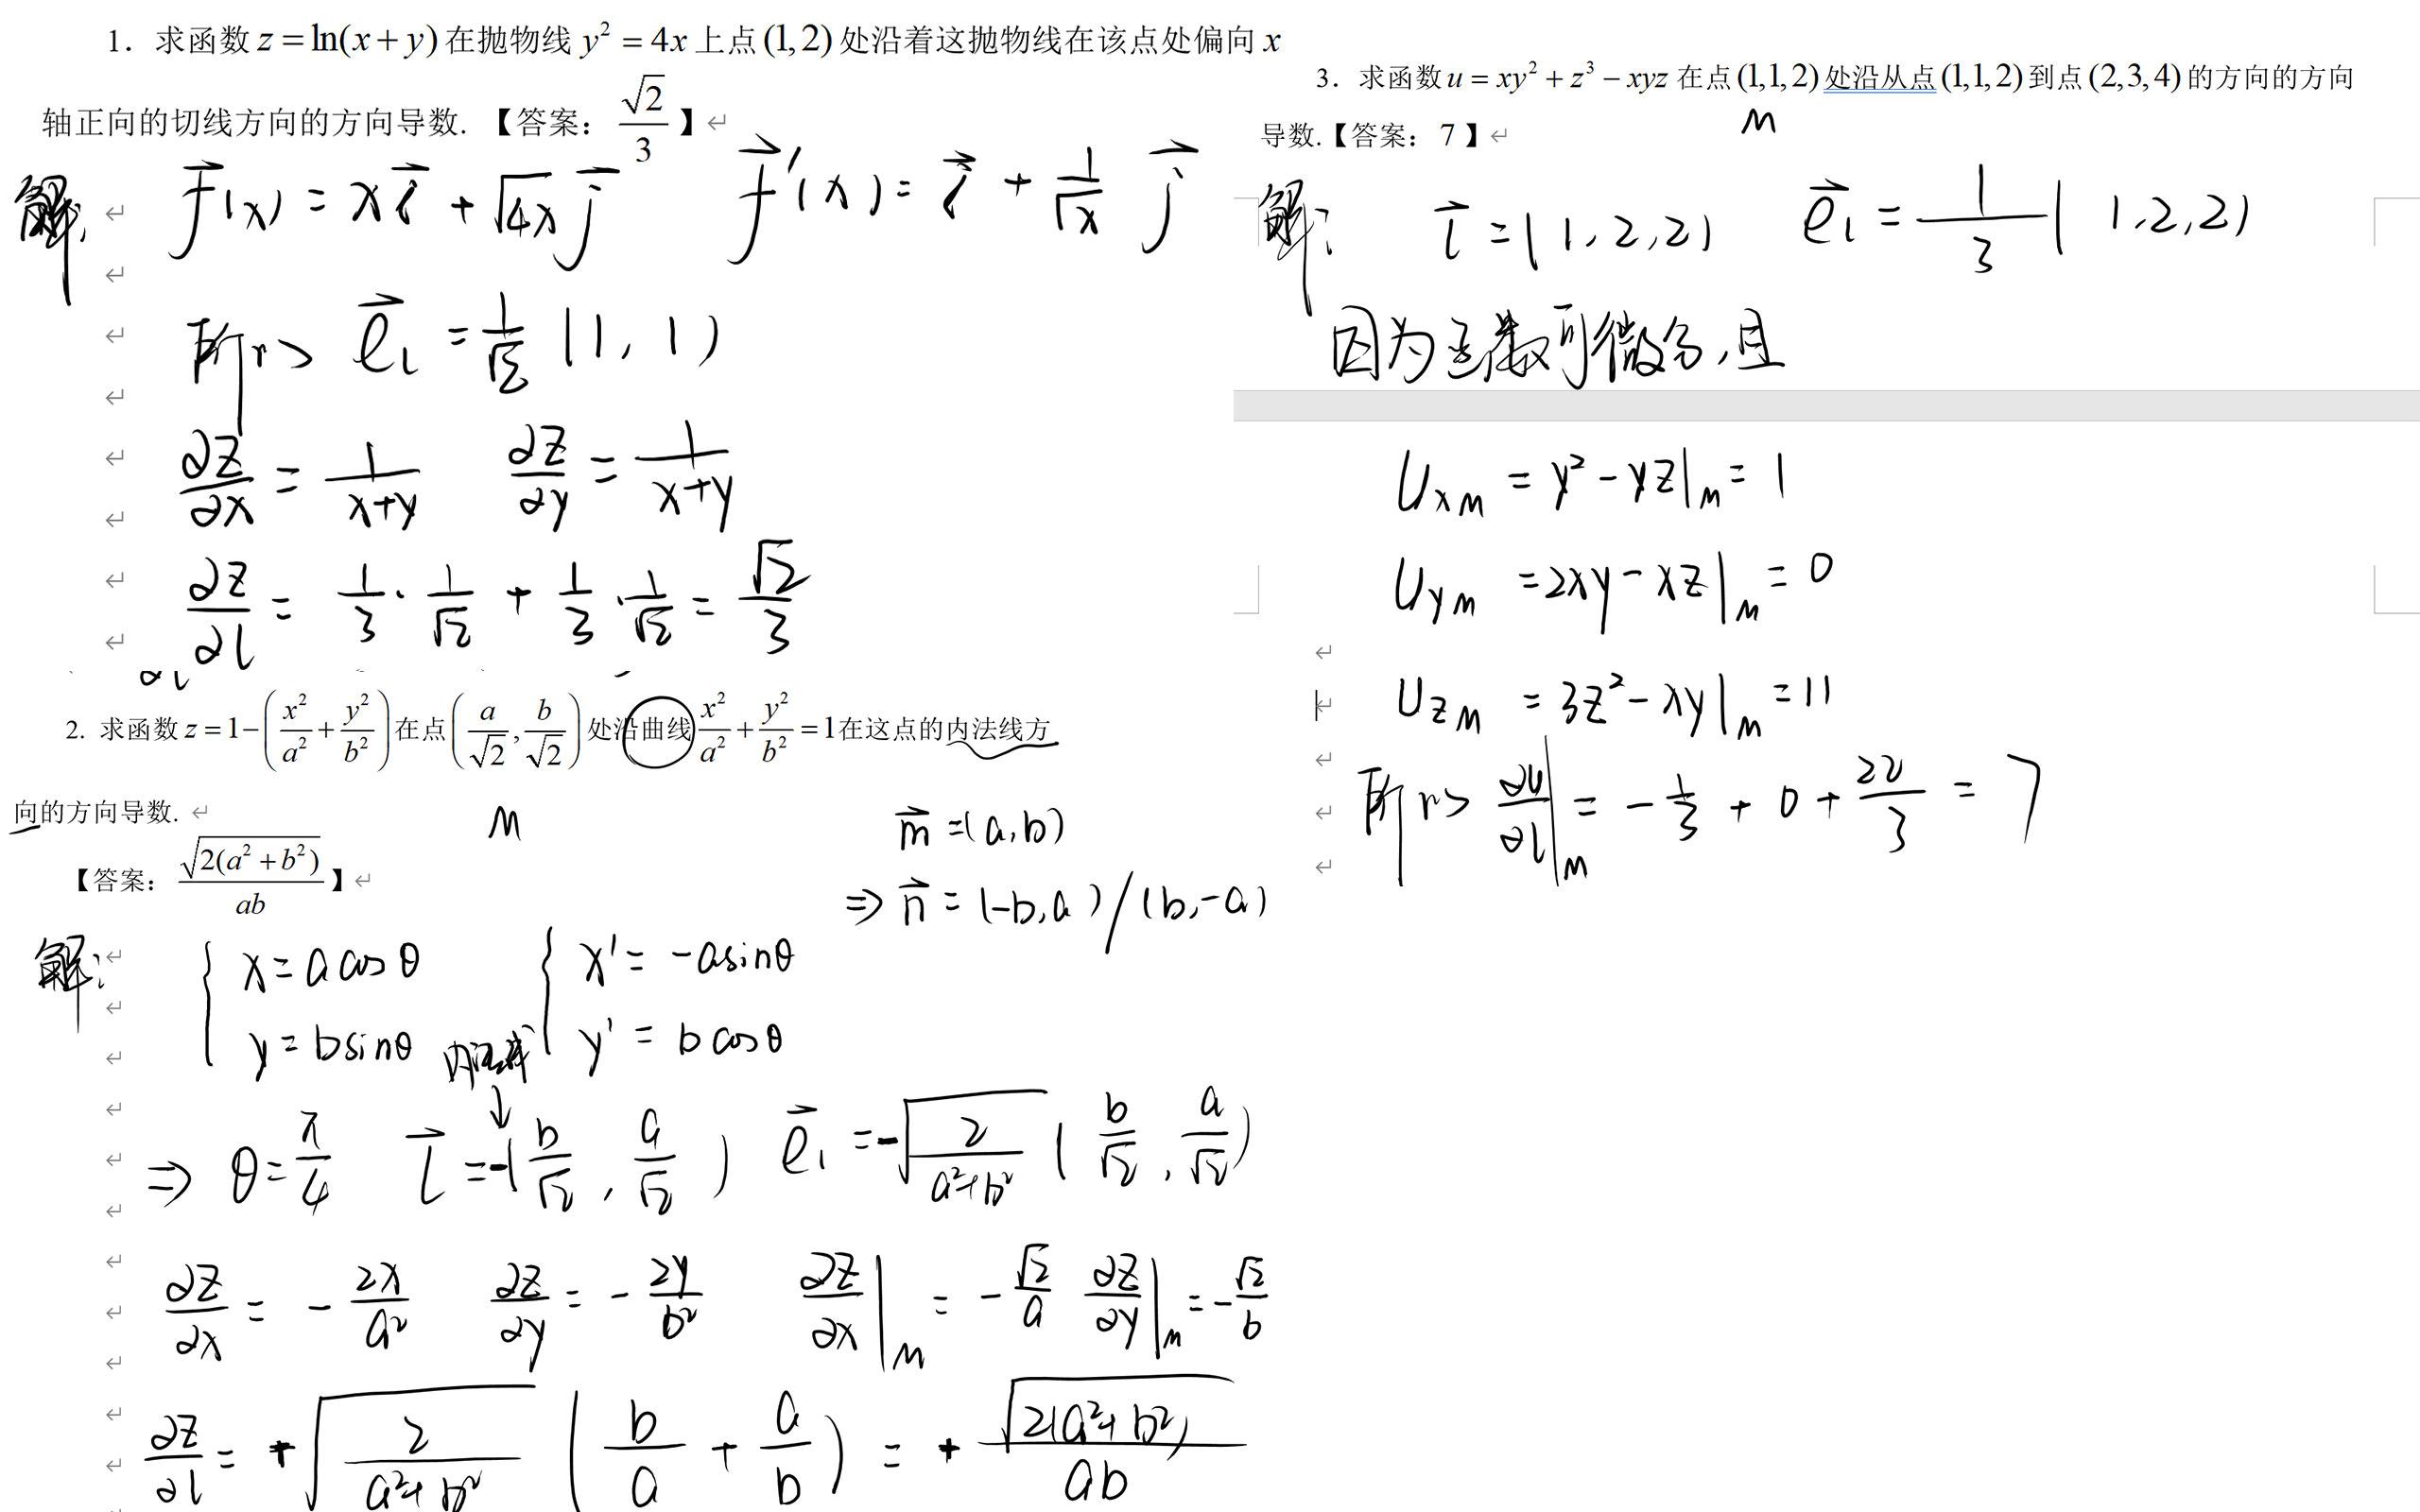 1. 求函数 z = ln(x+y) 在抛物线 y² = 4x 上点 (1,2) 处沿着这抛物线在该点处偏向 x
轴正向的切线方向的方向导数. 【答案: √2/3 】
解: f⃗(x) = x i⃗ + √4x j⃗  f⃗'(x) = i⃗ + 1/√x j⃗
所以 e⃗_l = 1/√2 (1, 1)
∂z/∂x = 1/(x+y)  ∂z/∂y = 1/(x+y)
∂z/∂l = 1/3 · 1/√2 + 1/3 · 1/√2 = √2/3
2. 求函数 z = 1-(x²/a² + y²/b²) 在点 (a/√2, b/√2) 处沿曲线 x²/a² + y²/b² = 1 在这点的内法线方
向的方向导数.
M
【答案: √(2(a²+b²))/ab 】
m⃗ = (a, b)
⇒ n⃗ = (-b, a) / (b, -a)
解: { x = a cosθ  { x' = -a sinθ
y = b sinθ  y' = b cosθ
⇒ θ = π/4  l⃗ = -(b/√2, a/√2)  e⃗_l = -√(2/(a²+b²)) (b/√2, a/√2)
∂z/∂x = -2x/a²  ∂z/∂y = -2y/b²  ∂z/∂x|_M = -√2/a  ∂z/∂y|_M = -√2/b
∂z/∂l = +√(2/(a²+b²)) (b/a + a/b) = +√(2(a²+b²))/ab
3. 求函数 u = xy² + z³ - xyz 在点 (1,1,2) 处沿从点 (1,1,2) 到点 (2,3,4) 的方向的方向
导数.【答案: 7 】
M
解: l⃗ = (1, 2, 2)  e⃗_l = 1/3 (1, 2, 2)
因为函数可微分, 且
U_xM = y² - yz|_M = 1
U_yM = 2xy - xz|_M = 0
U_zM = 3z² - xy|_M = 11
所以 ∂u/∂l|_M = -1/3 + 0 + 22/3 = 7